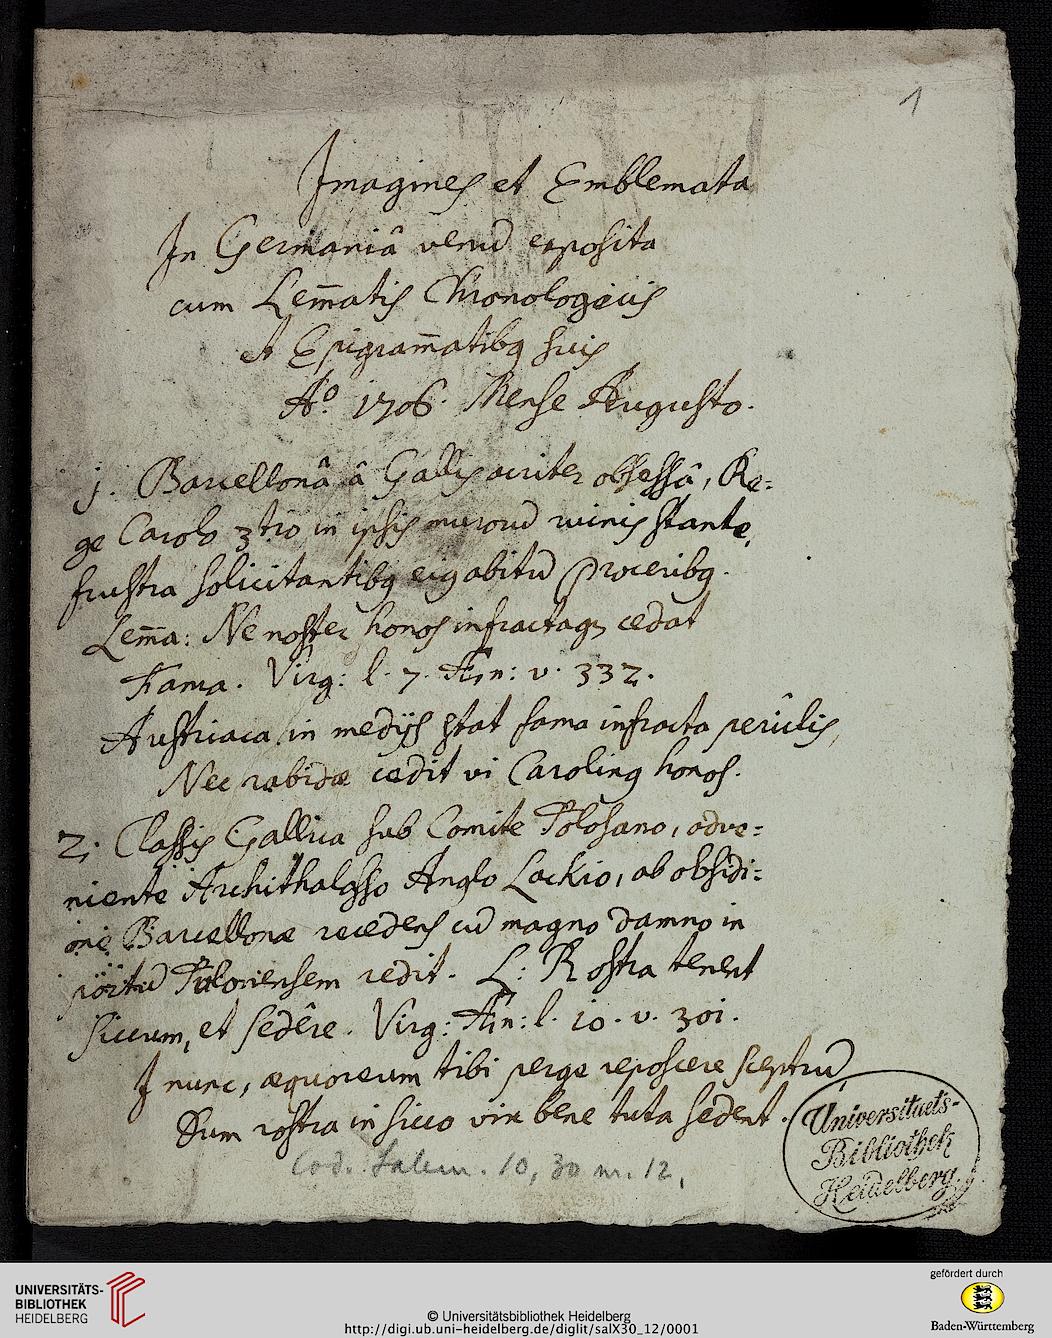 1
Imagines et Emblemata
In Germaniâ verũ exposita
cum Lem̃atis Chronologicis
et Epigram̃atibq suis
Aº. 1706. Mense Augusto.
1. Barcellonâ â Gallis acriter obsessâ, Re=
ge Carolo 3tio in ipsis murorũ ruinis stante,
frustra solicitantibq eiq abitũ Proceribq.
Lem̃a: Ne noster honos infractaq cedat
Fama. Virg: l. 7. Æn: v. 332.
Austriaca in medijs stat fama infracta periclis,
Nec rabidæ cedit vi Carolinq honos.
2. Classis Gallica sub Comite Tolosano, adve=
niente Archithalasso Anglo Lackio, ab obsidi=
one Barcellonæ recedens cũ magno damno in
portũ Tulonensem redit. L: Rostra tenent
siccum, et sedêre. Virg: Æn: l. 10. v. 301.
I nunc, æquoreum tibi perge reposcere sceptrũ,
Dum rostra in sicco vix bene tuta sedent.
Cod. Salem. 10, 30 nr. 12.
Universitaets-
Bibliothek
Heidelberg.
UNIVERSITÄTS-
BIBLIOTHEK
HEIDELBERG
© Universitätsbibliothek Heidelberg
http://digi.ub.uni-heidelberg.de/diglit/salX30_12/0001
gefördert durch
Baden-Württemberg